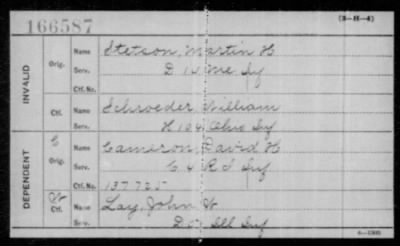 166587
(3-H-4)
INVALID
Orig. Name Stetson, Martin H
Serv. D 14 Me Inf
Ctf. No.
Ctf. Name Schroeder William
Serv. H 104 Ohio Inf
DEPENDENT
C
Orig. Name Cameron, David H
Serv. C 4 R I Inf
Ctf. No. 137725
Ctf. Name Lay, John W
Serv. D Ill Inf